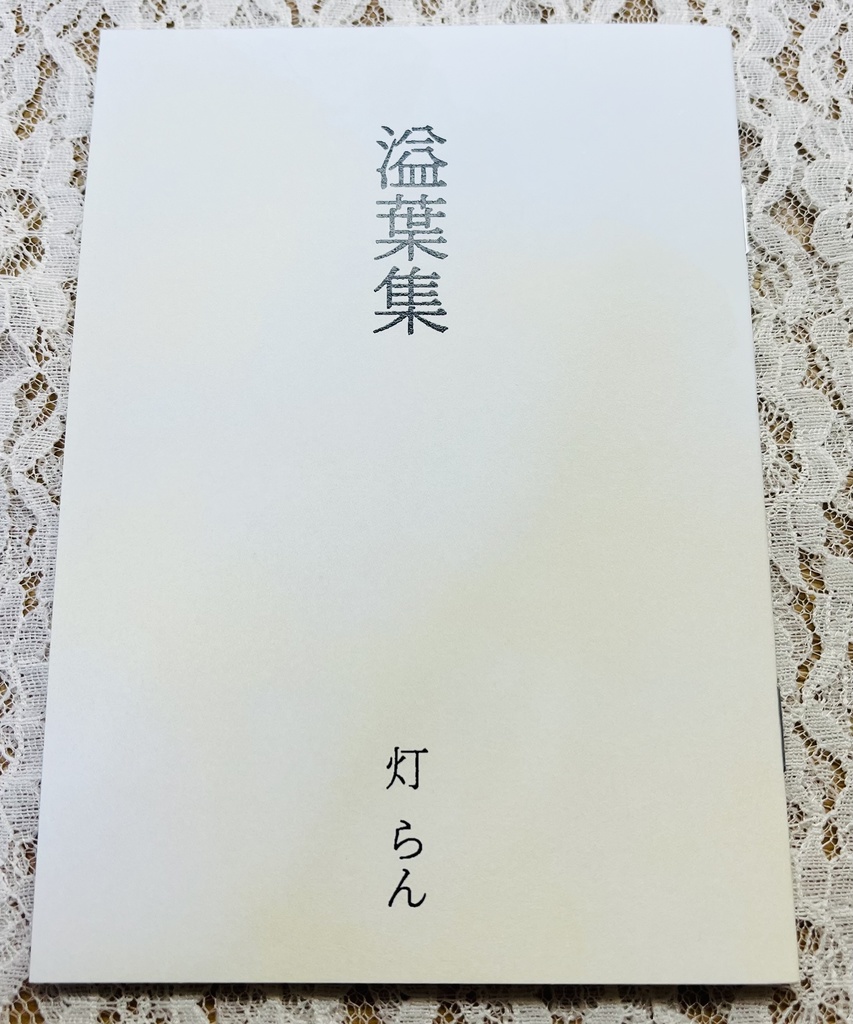 溢葉集
灯 らん